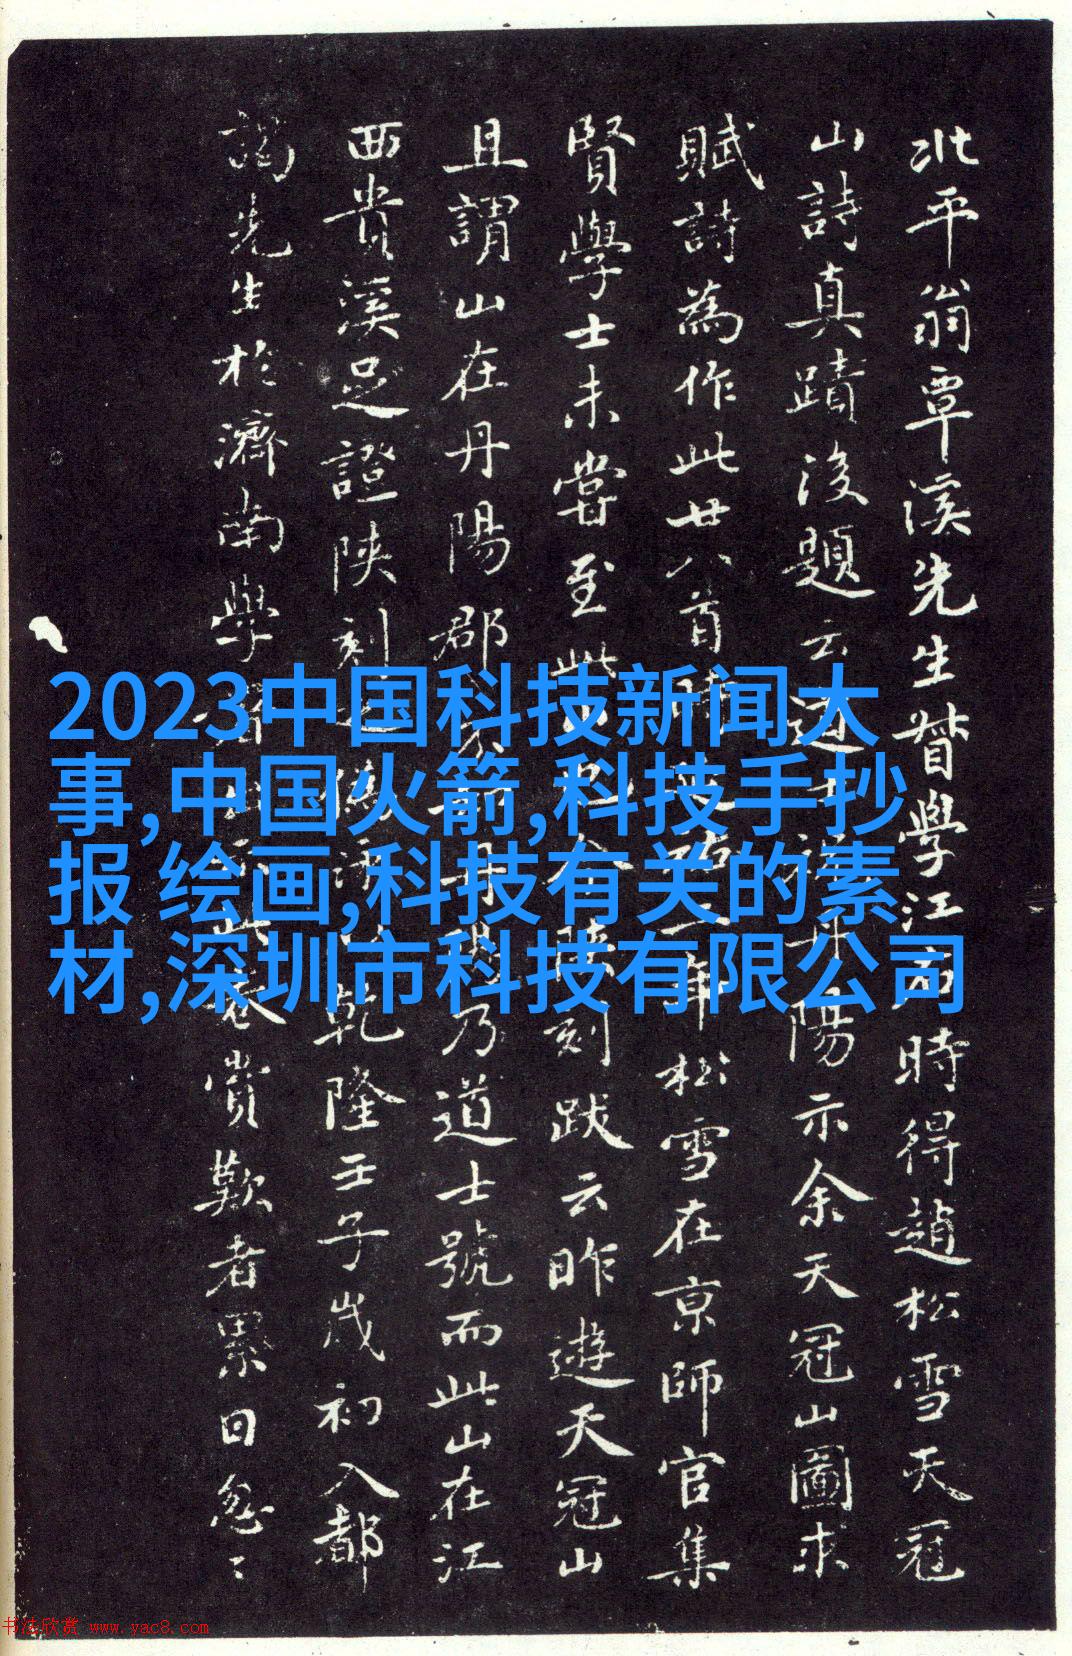 北平翁覃溪先生督學江西時得趙松雪天冠
山詩真蹟後題云道士祝丹陽示余天冠山圖求
賦詩為作此廿八首時延祐二年松雪在京師官集
賢學士未嘗至此山也今陝刻跋云昨遊天冠山
且謂山在丹陽郡丹陽乃道士號而此山在江
西貴溪足證陝刻之偽乾隆壬子歲初入都
謁先生於濟南學此卷賞歎者累日忽〻
2023中国科技新闻大
事,中国火箭,科技手抄
报 绘画,科技有关的素
材,深圳市科技有限公司
书法欣赏 www.yac8.com